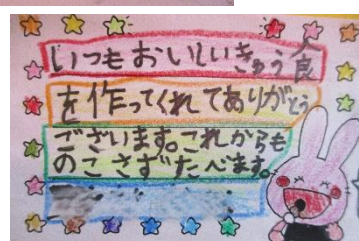 いつもおいしいきゅう食
を作ってくれてありがとう
ございます。これからも
のこさずたべます。